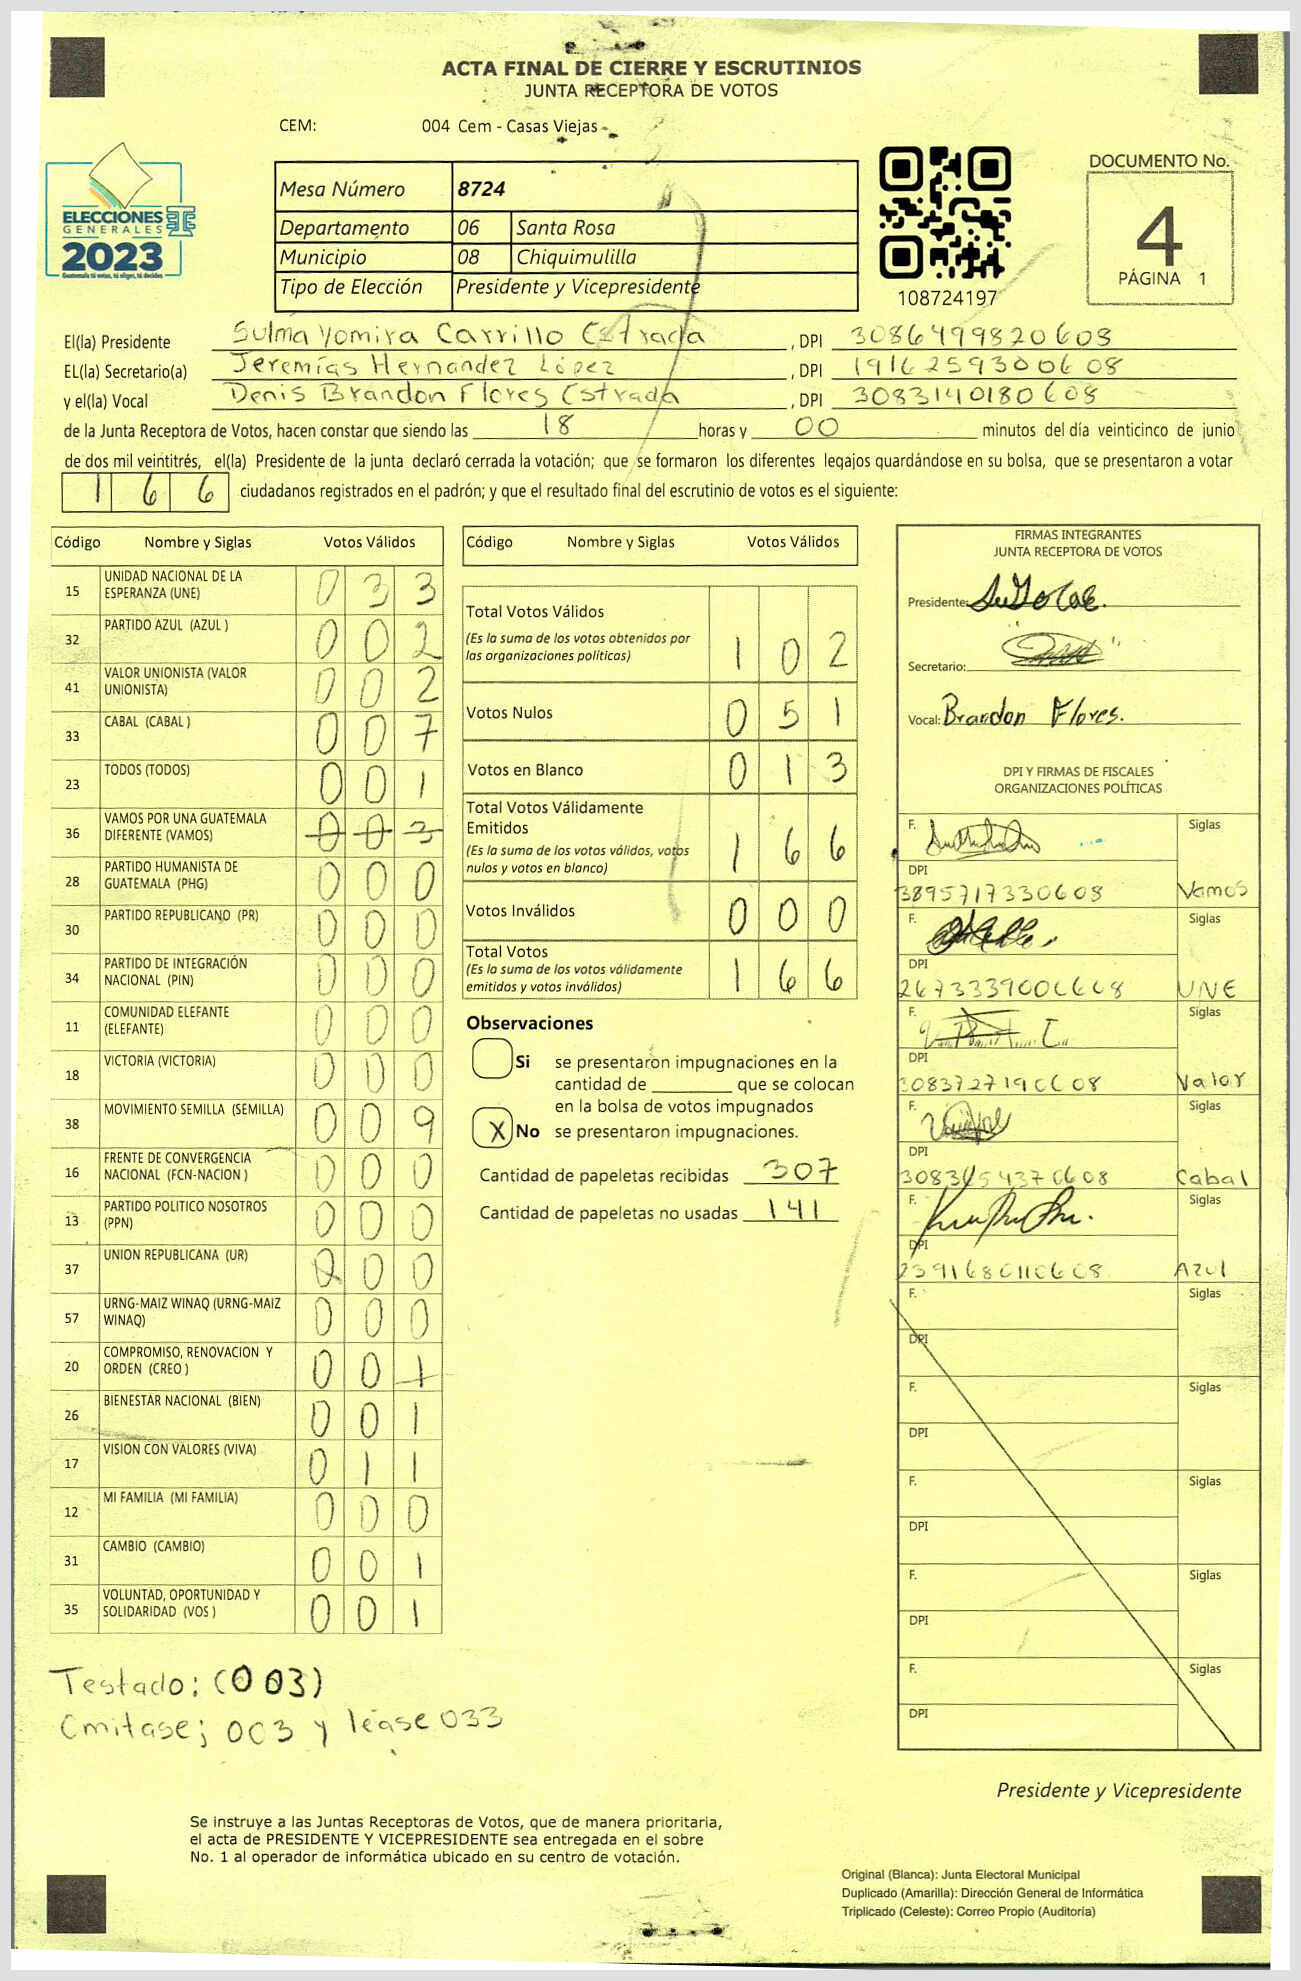 ACTA FINAL DE CIERRE Y ESCRUTINIOS
JUNTA RECEPTORA DE VOTOS
CEM: 004 Cem - Casas Viejas
ELECCIONES
GENERALES
2023
Guatemala tú votas, tú eliges, tú decides
Mesa Número 8724
Departamento 06 Santa Rosa
Municipio 08 Chiquimulilla
Tipo de Elección Presidente y Vicepresidente
108724197
DOCUMENTO No.
4
PÁGINA 1
El(la) Presidente Sulma Yomira Carrillo Estrada, DPI 3086499820608
EL(la) Secretario(a) Jeremías Hernandez López, DPI 1916259300608
y el(la) Vocal Denis Brandon Flores Estrada, DPI 3083140180608
de la Junta Receptora de Votos, hacen constar que siendo las 18 horas y 00 minutos del día veinticinco de junio
de dos mil veintitrés, el(la) Presidente de la junta declaró cerrada la votación; que se formaron los diferentes legajos quardándose en su bolsa, que se presentaron a votar
166 ciudadanos registrados en el padrón; y que el resultado final del escrutinio de votos es el siguiente:
Código Nombre y Siglas Votos Válidos
15 UNIDAD NACIONAL DE LA ESPERANZA (UNE) 033
32 PARTIDO AZUL (AZUL ) 002
41 VALOR UNIONISTA (VALOR UNIONISTA) 002
33 CABAL (CABAL ) 007
23 TODOS (TODOS) 001
36 VAMOS POR UNA GUATEMALA DIFERENTE (VAMOS) 003
28 PARTIDO HUMANISTA DE GUATEMALA (PHG) 000
30 PARTIDO REPUBLICANO (PR) 000
34 PARTIDO DE INTEGRACIÓN NACIONAL (PIN) 000
11 COMUNIDAD ELEFANTE (ELEFANTE) 000
18 VICTORIA (VICTORIA) 000
38 MOVIMIENTO SEMILLA (SEMILLA) 009
16 FRENTE DE CONVERGENCIA NACIONAL (FCN-NACION ) 000
13 PARTIDO POLITICO NOSOTROS (PPN) 000
37 UNION REPUBLICANA (UR) 000
57 URNG-MAIZ WINAQ (URNG-MAIZ WINAQ) 000
20 COMPROMISO, RENOVACION Y ORDEN (CREO ) 001
26 BIENESTAR NACIONAL (BIEN) 001
17 VISION CON VALORES (VIVA) 011
12 MI FAMILIA (MI FAMILIA) 000
31 CAMBIO (CAMBIO) 001
35 VOLUNTAD, OPORTUNIDAD Y SOLIDARIDAD (VOS ) 001
Testado: (003)
Omitase; 003 y léase 033
Código Nombre y Siglas Votos Válidos
Total Votos Válidos 102
(Es la suma de los votos obtenidos por
las organizaciones políticas)
Votos Nulos 051
Votos en Blanco 013
Total Votos Válidamente
Emitidos 166
(Es la suma de los votos válidos, votos
nulos y votos en blanco)
Votos Inválidos 000
Total Votos 166
(Es la suma de los votos válidamente
emitidos y votos inválidos)
Observaciones
Si se presentaron impugnaciones en la
cantidad de ________ que se colocan
en la bolsa de votos impugnados
X No se presentaron impugnaciones.
Cantidad de papeletas recibidas 307
Cantidad de papeletas no usadas 141
FIRMAS INTEGRANTES
JUNTA RECEPTORA DE VOTOS
Presidente:
Secretario:
Vocal: Brandon Flores.
DPI Y FIRMAS DE FISCALES
ORGANIZACIONES POLÍTICAS
F. Siglas
DPI
3895717330608 Vamos
F. Siglas
DPI
UNE
F. Siglas
DPI
Valor
F. Siglas
DPI
Cabal
F. Siglas
DPI
2391680110608 Azul
F. Siglas
DPI
F. Siglas
DPI
F. Siglas
DPI
F. Siglas
DPI
F. Siglas
DPI
Presidente y Vicepresidente
Se instruye a las Juntas Receptoras de Votos, que de manera prioritaria,
el acta de PRESIDENTE Y VICEPRESIDENTE sea entregada en el sobre
No. 1 al operador de informática ubicado en su centro de votación.
Original (Blanca): Junta Electoral Municipal
Duplicado (Amarilla): Dirección General de Informática
Triplicado (Celeste): Correo Propio (Auditoría)